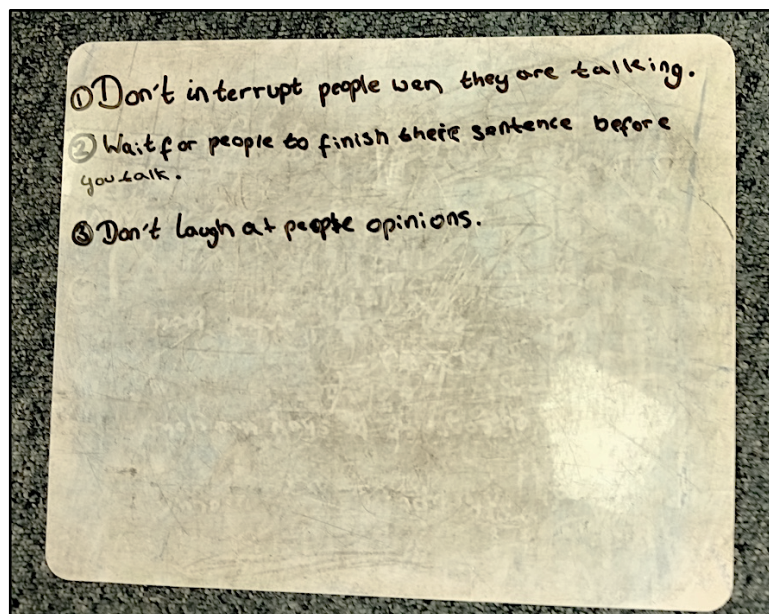 ① Don't interrupt people wen they are talking.
② Wait for people to finish there sentence before
you talk.
③ Don't laugh at people opinions.